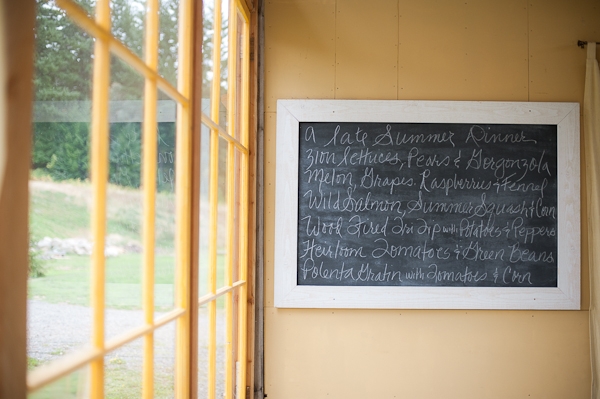 A Late Summer Dinner
Zion Lettuces, Pears & Gorgonzola
Melon, Grapes, Raspberries & Fennel
Wild Salmon, Summer Squash & Corn
Wood Fired Tri Tip with Potatoes & Peppers
Heirloom Tomatoes & Green Beans
Polenta Gratin with Tomatoes & Corn